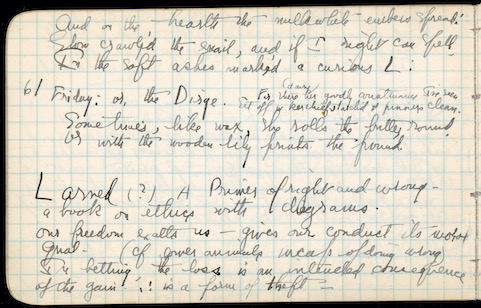 And on the hearth the milkwhite embers spread:
Slow crawl'd the snail, and if I right can spell
In the soft ashes mark'd a curious L:
61 Friday: or, the Dirge. For there her goodly countenance I've seen
Set off with kerchief starch'd & pinners clean.
Sometimes, like wax, she rolls the butter round
Or with the wooden lily prints the pound.
Larned (?) A Primer of right and wrong -
a book on ethics with diagrams.
our freedom exalts us - gives our conduct its moral
qual. (cf lower animals incap. of doing wrong
In betting the loss is an intended consequence
of the gain ∴ is a form of theft -